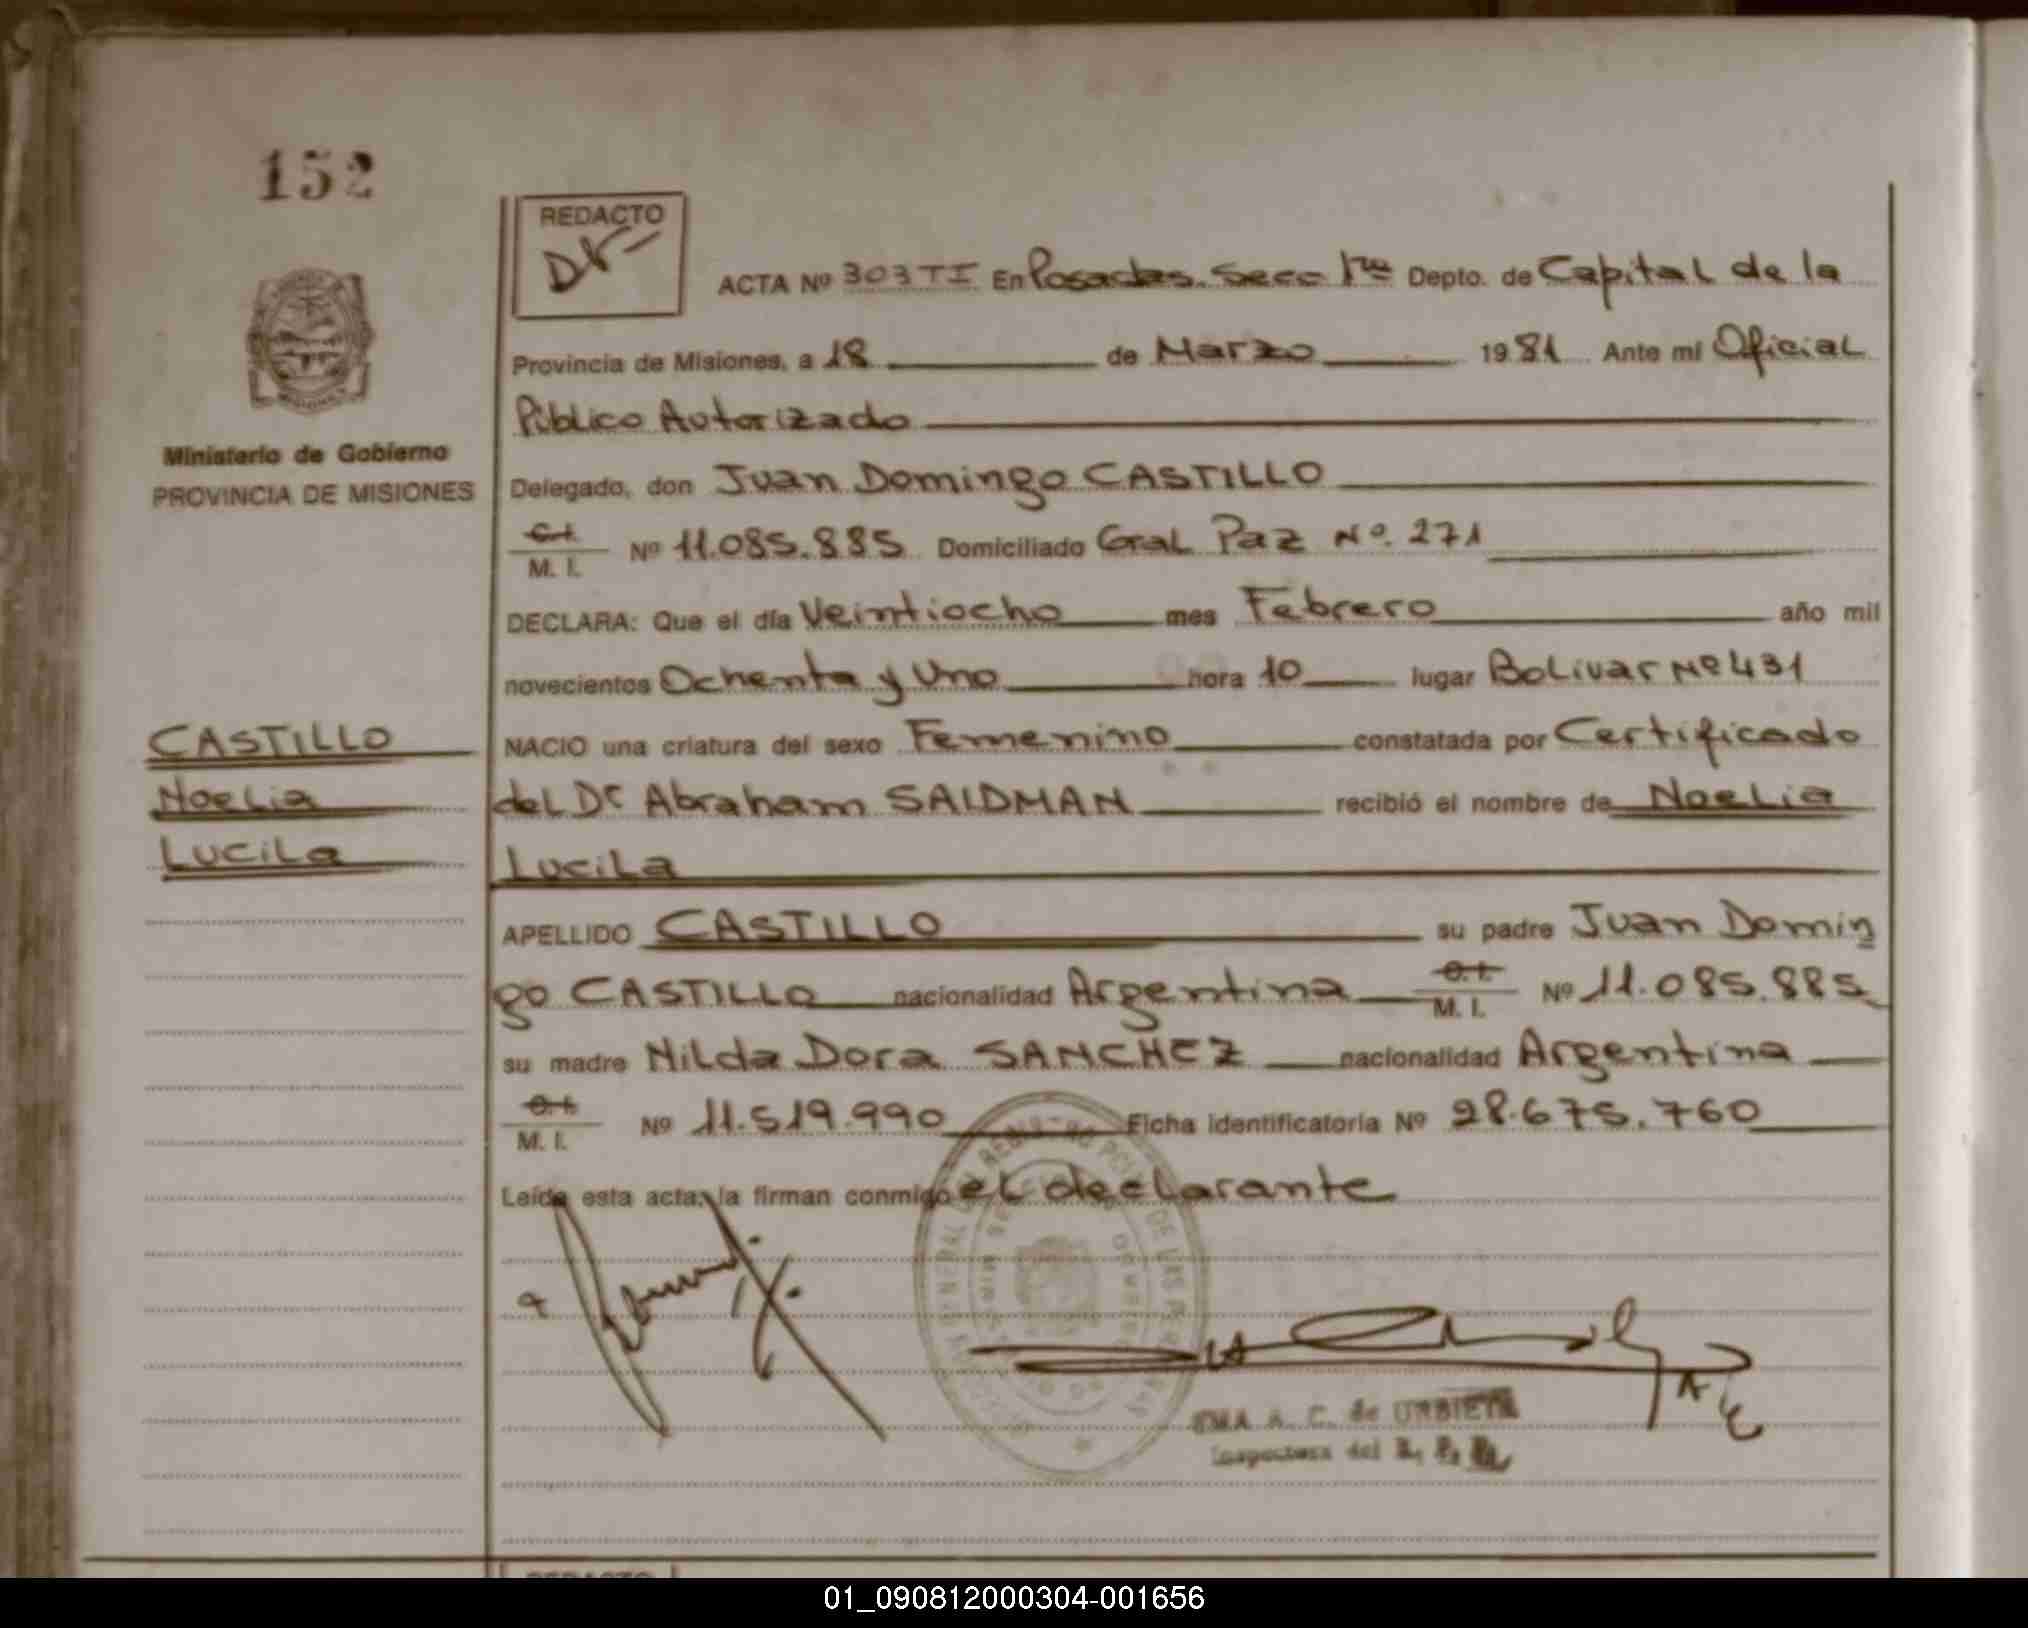 152
REDACTO
ACTA Nº 303 TI En Posadas. Secc 1ra Depto. de Capital de la
Provincia de Misiones, a 18 de Marzo 1981 Ante mi Oficial
Público Autorizado
Ministerio de Gobierno
PROVINCIA DE MISIONES
Delegado, don Juan Domingo CASTILLO
M. I. Nº 11.085.885 Domiciliado Gral Paz Nº. 271
DECLARA: Que el día Veintiocho mes Febrero año mil
novecientos Ochenta y Uno hora 10 lugar Bolivar Nº 431
CASTILLO
Noelia
Lucila
NACIO una criatura del sexo Femenino constatada por Certificado
del Dr Abraham SAIDMAN recibió el nombre de Noelia
Lucila
APELLIDO CASTILLO su padre Juan Domin
go CASTILLO nacionalidad Argentina C.I. M. I. Nº 11.085.885
su madre Nilda Dora SANCHEZ nacionalidad Argentina
C.I. M. I. Nº 11.519.990 Ficha identificatoria Nº 28.675.760
Leída esta acta, la firman conmigo el declarante
A. C. de URBIETA
Inspectora del
REDACTO
01_090812000304-001656